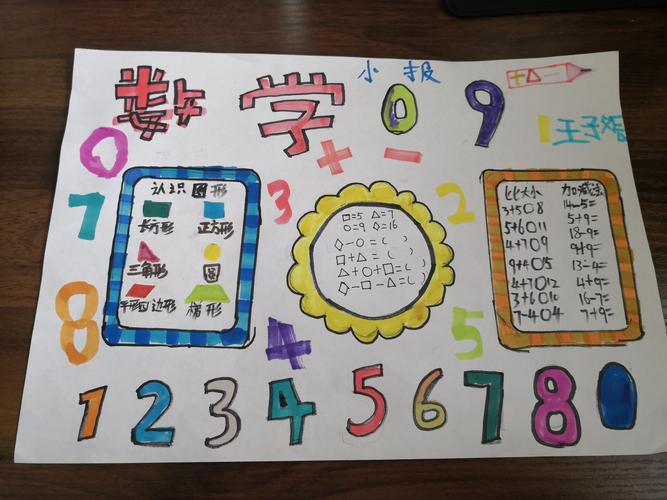 数学
小报
0 9
+ △ −
王子
0
+ −
7
3
2
8
4
5
认识图形
长方形 正方形
三角形 圆
平形四边形 梯形
□=5 △=7
○=9 ◇=16
◇-○=( )
□+△=( )
△+○+□=( )
◇-□-△=( )
比大小
3+5○8
5+6○11
4+7○9
9+4○15
4+7○12
3+6○10
7-4○4
加减法
14-5=
5+9=
18-9=
9+9=
13-4=
4+9=
16-7=
7+9=
1 2 3 4 5 6 7 8 0